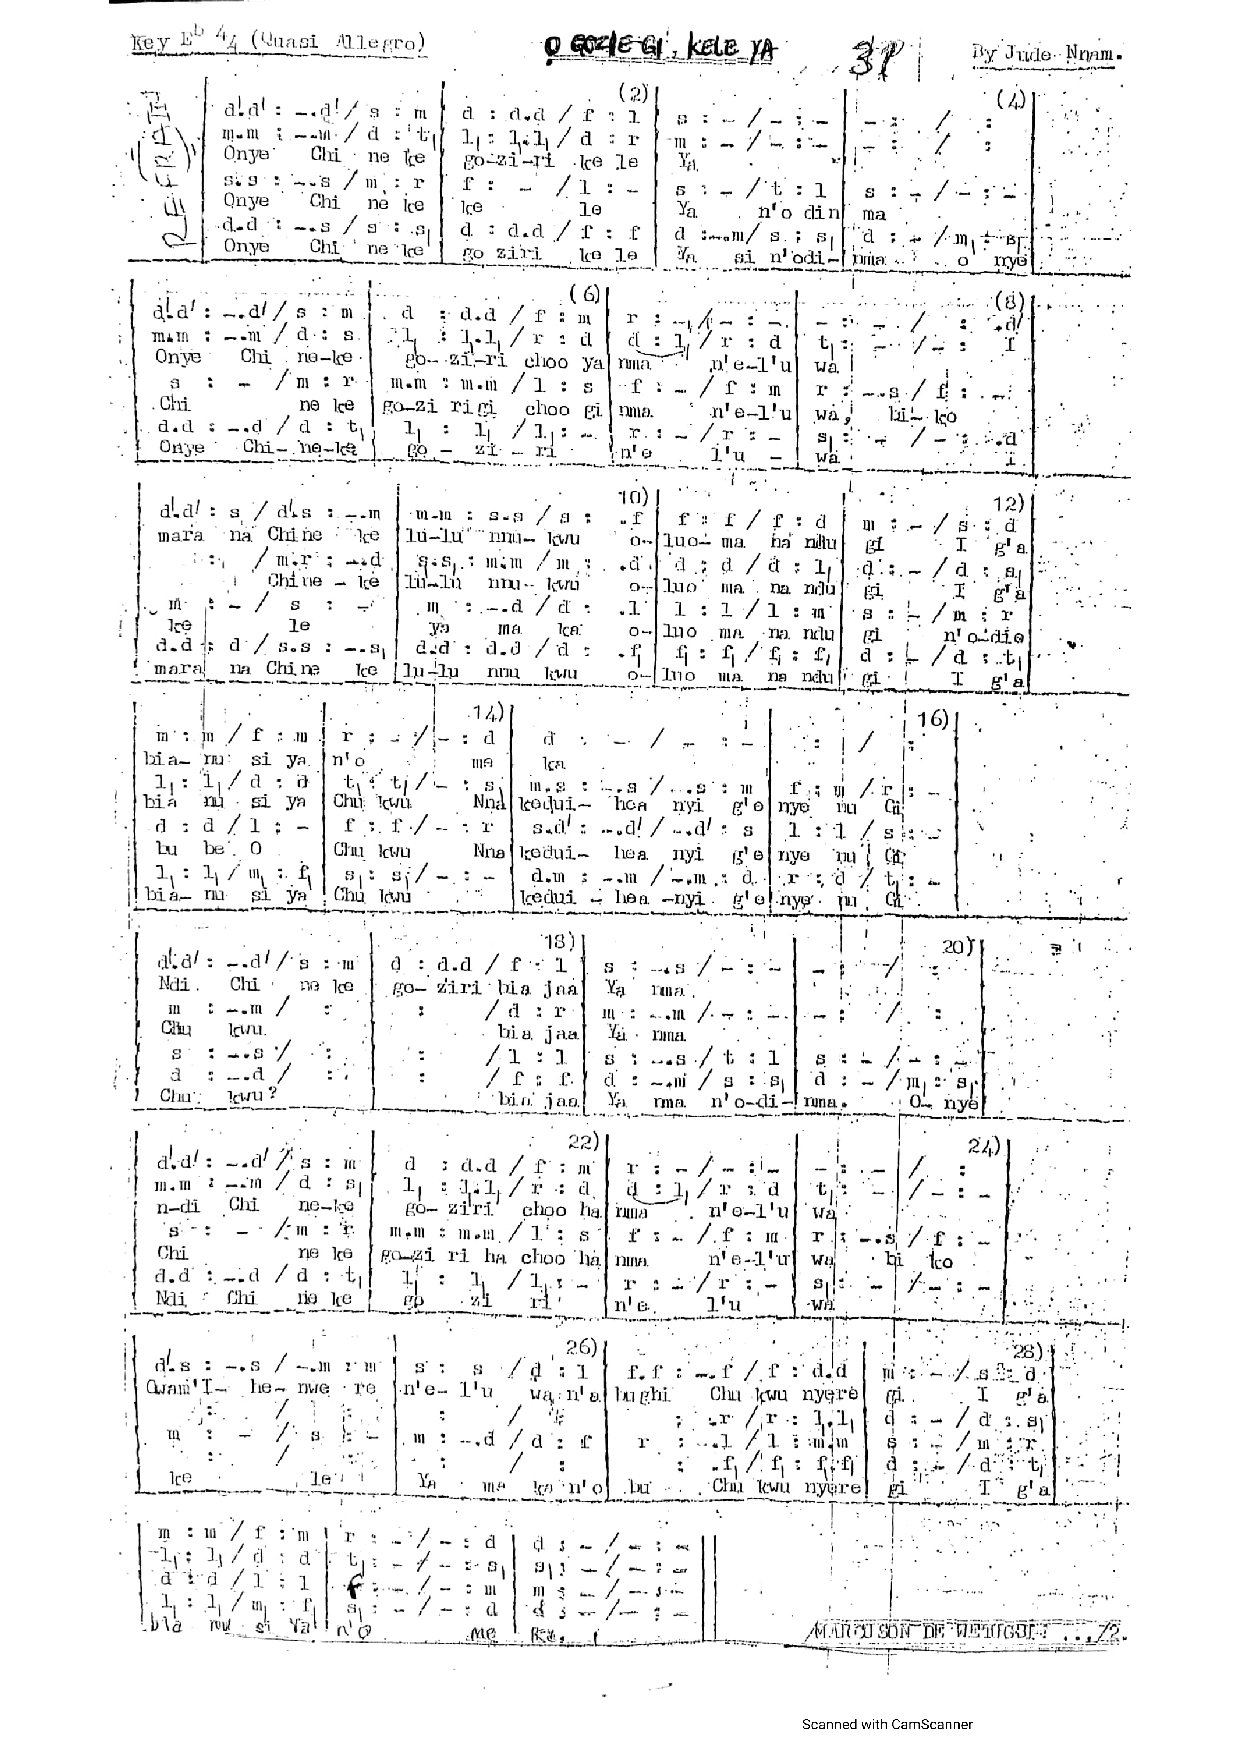 Key Eb 4/4 (Quasi Allegro) O GOZIE GI, KELE YA 31 By Jude Nnam.
(2) (4)
(REFRAIN)
d'.d' : -.d' / s : m | d : d.d / f : l | s : - / - : - | - : / :
m.m : -.m / d : t₁ | l₁ : l₁.l₁ / d : r | m : - / - : - | - : / :
Onye Chi ne ke | go-zi-ri ke le | Ya
s.s : -.s / m : r | f : - / l : - | s : - / t : l | s : - / - : -
Onye Chi ne ke | ke le | Ya n'o din | ma
d.d : -.s / s : s₁ | d : d.d / f : f | d : -.m / s : s₁ | d : - / m₁ : s₁
Onye Chi ne ke | go ziri ke le | Ya si n'odi- | nma o nye
(6) (8)
d'.d' : -.d' / s : m | d : d.d / f : m | r : - / - : - | - : - / : .d'
m.m : -.m / d : s | l₁ : l₁.l₁ / r : d | d : l₁ / r : d | t₁ : - / - : I
Onye Chi ne-ke | go-zi-ri choo ya | nma n'e-l'u | wa
s : - / m : r | m.m : m.m / l : s | f : - / f : m | r : -.s / f : -
Chi ne ke | go-zi ri gi choo gi | nma n'e-l'u | wa, bi-ko
d.d : -.d / d : t₁ | l₁ : l₁ / l₁ : - | r : - / r : - | s₁ : - / - : .d
Onye Chi-ne-ke | go - zi - ri | n'e l'u - | wa I
10) 12)
d'.d' : s / d'.s : -.m | m.m : s.s / s : .f | f : f / f : d | m : - / s : d
mara na Chine ke | lu-lu nnu-kwu o- | luo-ma na ndu | gi I g'a
: / m.r : -.d | s.s : m.m / m : .d | d : d / d : l₁ | d : - / d : s₁
Chine - ke | lu-lu nnu-kwu o- | luo ma na ndu | gi I g'a
m : - / s : - | m : -.d / d : .l | l : l / l : m | s : - / m : r
ke le | ya ma ka o- | luo ma na ndu | gi n'o-dio
d.d : d / s.s : -.s₁ | d.d : d.d / d : .f₁ | f₁ : f₁ / f₁ : f₁ | d : - / d : t₁
mara na Chine ke | lu-lu nnu kwu o- | luo ma na ndu | gi I g'a
14) 16)
m : m / f : m | r : - / - : d | d : - / - : - | : / :
bia- nu si ya | n'o ma | ka
l₁ : l₁ / d : d | t₁ : t₁ / - : s₁ | m.s : -.s / -.s : m | f : m / r : -
bia nu si ya | Chu kwu Nna | kedui- hea nyi g'e | nye nu Gi
d : d / l : - | f : f / - : r | s.d' : -.d' / -.d' : s | l : l / s : -
bu be O | Chu kwu Nna | kedui- hea nyi g'e | nye nu Gi
l₁ : l₁ / m₁ : f₁ | s₁ : s₁ / - : - | d.m : -.m / -.m : d | r : d / t₁ : -
bia- nu si ya | Chu kwu | kedui - hea -nyi g'e | nye nu Gi
18) 20)
d'.d' : -.d' / s : m | d : d.d / f : l | s : -.s / - : - | - : - / :
Ndi Chi ne ke | go- ziri bia jaa | Ya nma
m : -.m / : | : / d : r | m : -.m / - : - | - : / :
Chu kwu | bia jaa | Ya nma
s : -.s / : | : / l : l | s : -.s / t : l | s : - / - : -
d : -.d / : | : / f : f | d : -.m / s : s₁ | d : - / m₁ : s₁
Chu kwu? | bia jaa | Ya nma n'o-di- | nma. O- nye
22) 24)
d'.d' : -.d' / s : m | d : d.d / f : m | r : - / - : - | - : - / :
m.m : -.m / d : s₁ | l₁ : l₁.l₁ / r : d | d : l₁ / r : d | t₁ : - / - : -
n-di Chi ne-ke | go- ziri choo ha | nma n'e-l'u | wa
s : - / m : r | m.m : m.m / l : s | f : - / f : m | r : -.s / f : -
Chi ne ke | go-zi ri ha choo ha | nma n'e-l'u | wa bi ko
d.d : -.d / d : t₁ | l₁ : l₁ / l₁ : - | r : - / r : - | s₁ : - / - : -
Ndi Chi ne ke | go zi ri | n'e l'u | wa
26) 28)
d'.s : -.s / -.m : m | s : s / d : l | f.f : -.f / f : d.d | m : - / s : d
Gwam'I- he- nwe re | n'e- l'u wa n'a | bughi Chu kwu nyere | gi I g'a
: / : | : / : | : .r / r : l₁.l₁ | d : - / d : s₁
m : - / s : - | m : -.d / d : f | r : -.l / l : m.m | s : - / m : r
: / : | : / : | : .f₁ / f₁ : f₁.f₁ | d : - / d : t₁
ke le | Ya ma ka n'o | bu Chu kwu nyere | gi I g'a
m : m / f : m | r : - / - : d | d : - / - : -
l₁ : l₁ / d : d | t₁ : - / - : s₁ | s₁ : - / - : -
d : d / l : l | f : - / - : m | m : - / - : -
l₁ : l₁ / m₁ : f₁ | s₁ : - / - : d | d : - / - : -
bia nu si Ya | n'O me | Ka.
Scanned with CamScanner